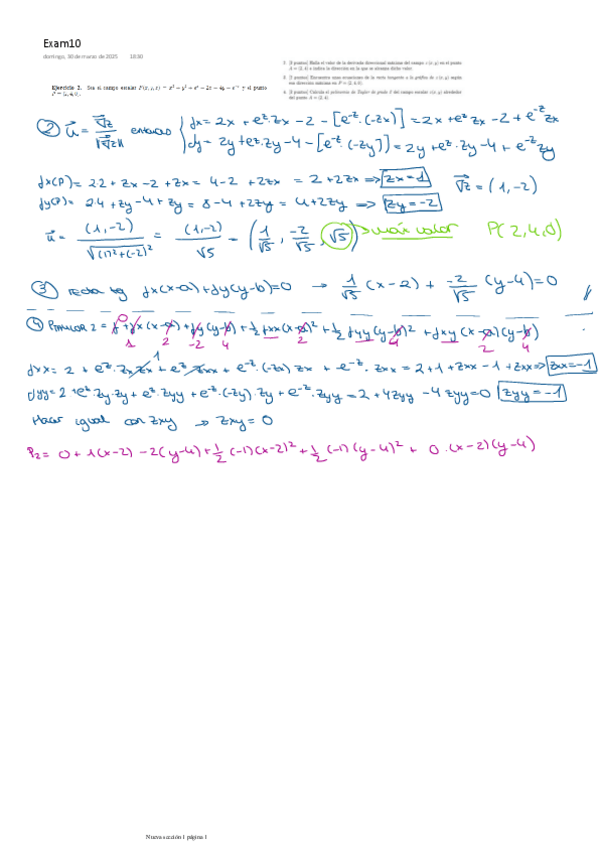 Exam10
domingo, 30 de marzo de 2025 18:30
Ejercicio 2. Sea el campo escalar F(x, y, z) = x² + y² + eᶻ − 2x − 4y − e⁻ᶻ y el punto
2. [3 puntos] Halla el valor de la derivada direccional máxima del campo z(x, y) en el punto
A = (2, 4) e indica la dirección en la que se alcanza dicho valor.
3. [3 puntos] Encuentre unas ecuaciones de la recta tangente a la gráfica de z(x, y) según
esa dirección máxima en P = (2, 4, 0).
4. [4 puntos] Calcula el polinomio de Taylor de grado 2 del campo escalar z(x, y) alrededor
del punto A = (2, 4)
② u⃗ = ∇⃗z / ||∇⃗z|| entonces { fx = 2x + eᶻ·zx − 2 − [e⁻ᶻ·(−zx)] = 2x + eᶻ zx − 2 + e⁻ᶻ zx
fy = 2y + eᶻ·zy − 4 − [e⁻ᶻ·(−zy)] = 2y + eᶻ·zy − 4 + e⁻ᶻ zy
fx(P) = 2·2 + zx − 2 + zx = 4 − 2 + 2zx = 2 + 2zx ⇒ zx = −1 ∇⃗z = (1, −2)
fy(P) = 2·4 + zy − 4 + zy = 8 − 4 + 2zy = 4 + 2zy ⇒ zy = −2
u⃗ = (1, −2) / √((1)² + (−2)²) = (1, −2) / √5 = (1/√5, −2/√5, √5) → máx valor P(2, 4, 0)
③ recta tg fx(x−a) + fy(y−b) = 0 → 1/√5 (x − 2) + −2/√5 (y − 4) = 0
④ P TAYLOR 2 = f + fx(x−a) + fy(y−b) + ½ fxx(x−a)² + ½ fyy(y−b)² + fxy(x−a)(y−b)
0 1 2 −2 4 2 4 2 4
fxx = 2 + eᶻ·zx zx + eᶻ zxx + e⁻ᶻ·(−zx) zx + e⁻ᶻ·zxx = 2 + 1 + zxx − 1 + zxx ⇒ zxx = −1
fyy = 2 + eᶻ·zy·zy + eᶻ·zyy + e⁻ᶻ·(−zy)·zy + e⁻ᶻ·zyy = 2 + 4zyy − 4 zyy = 0 zyy = −1
Hacer igual con zxy → zxy = 0
P₂ = 0 + 1(x−2) − 2(y−4) + ½(−1)(x−2)² + ½(−1)(y−4)² + 0·(x−2)(y−4)
Nueva sección 1 página 1